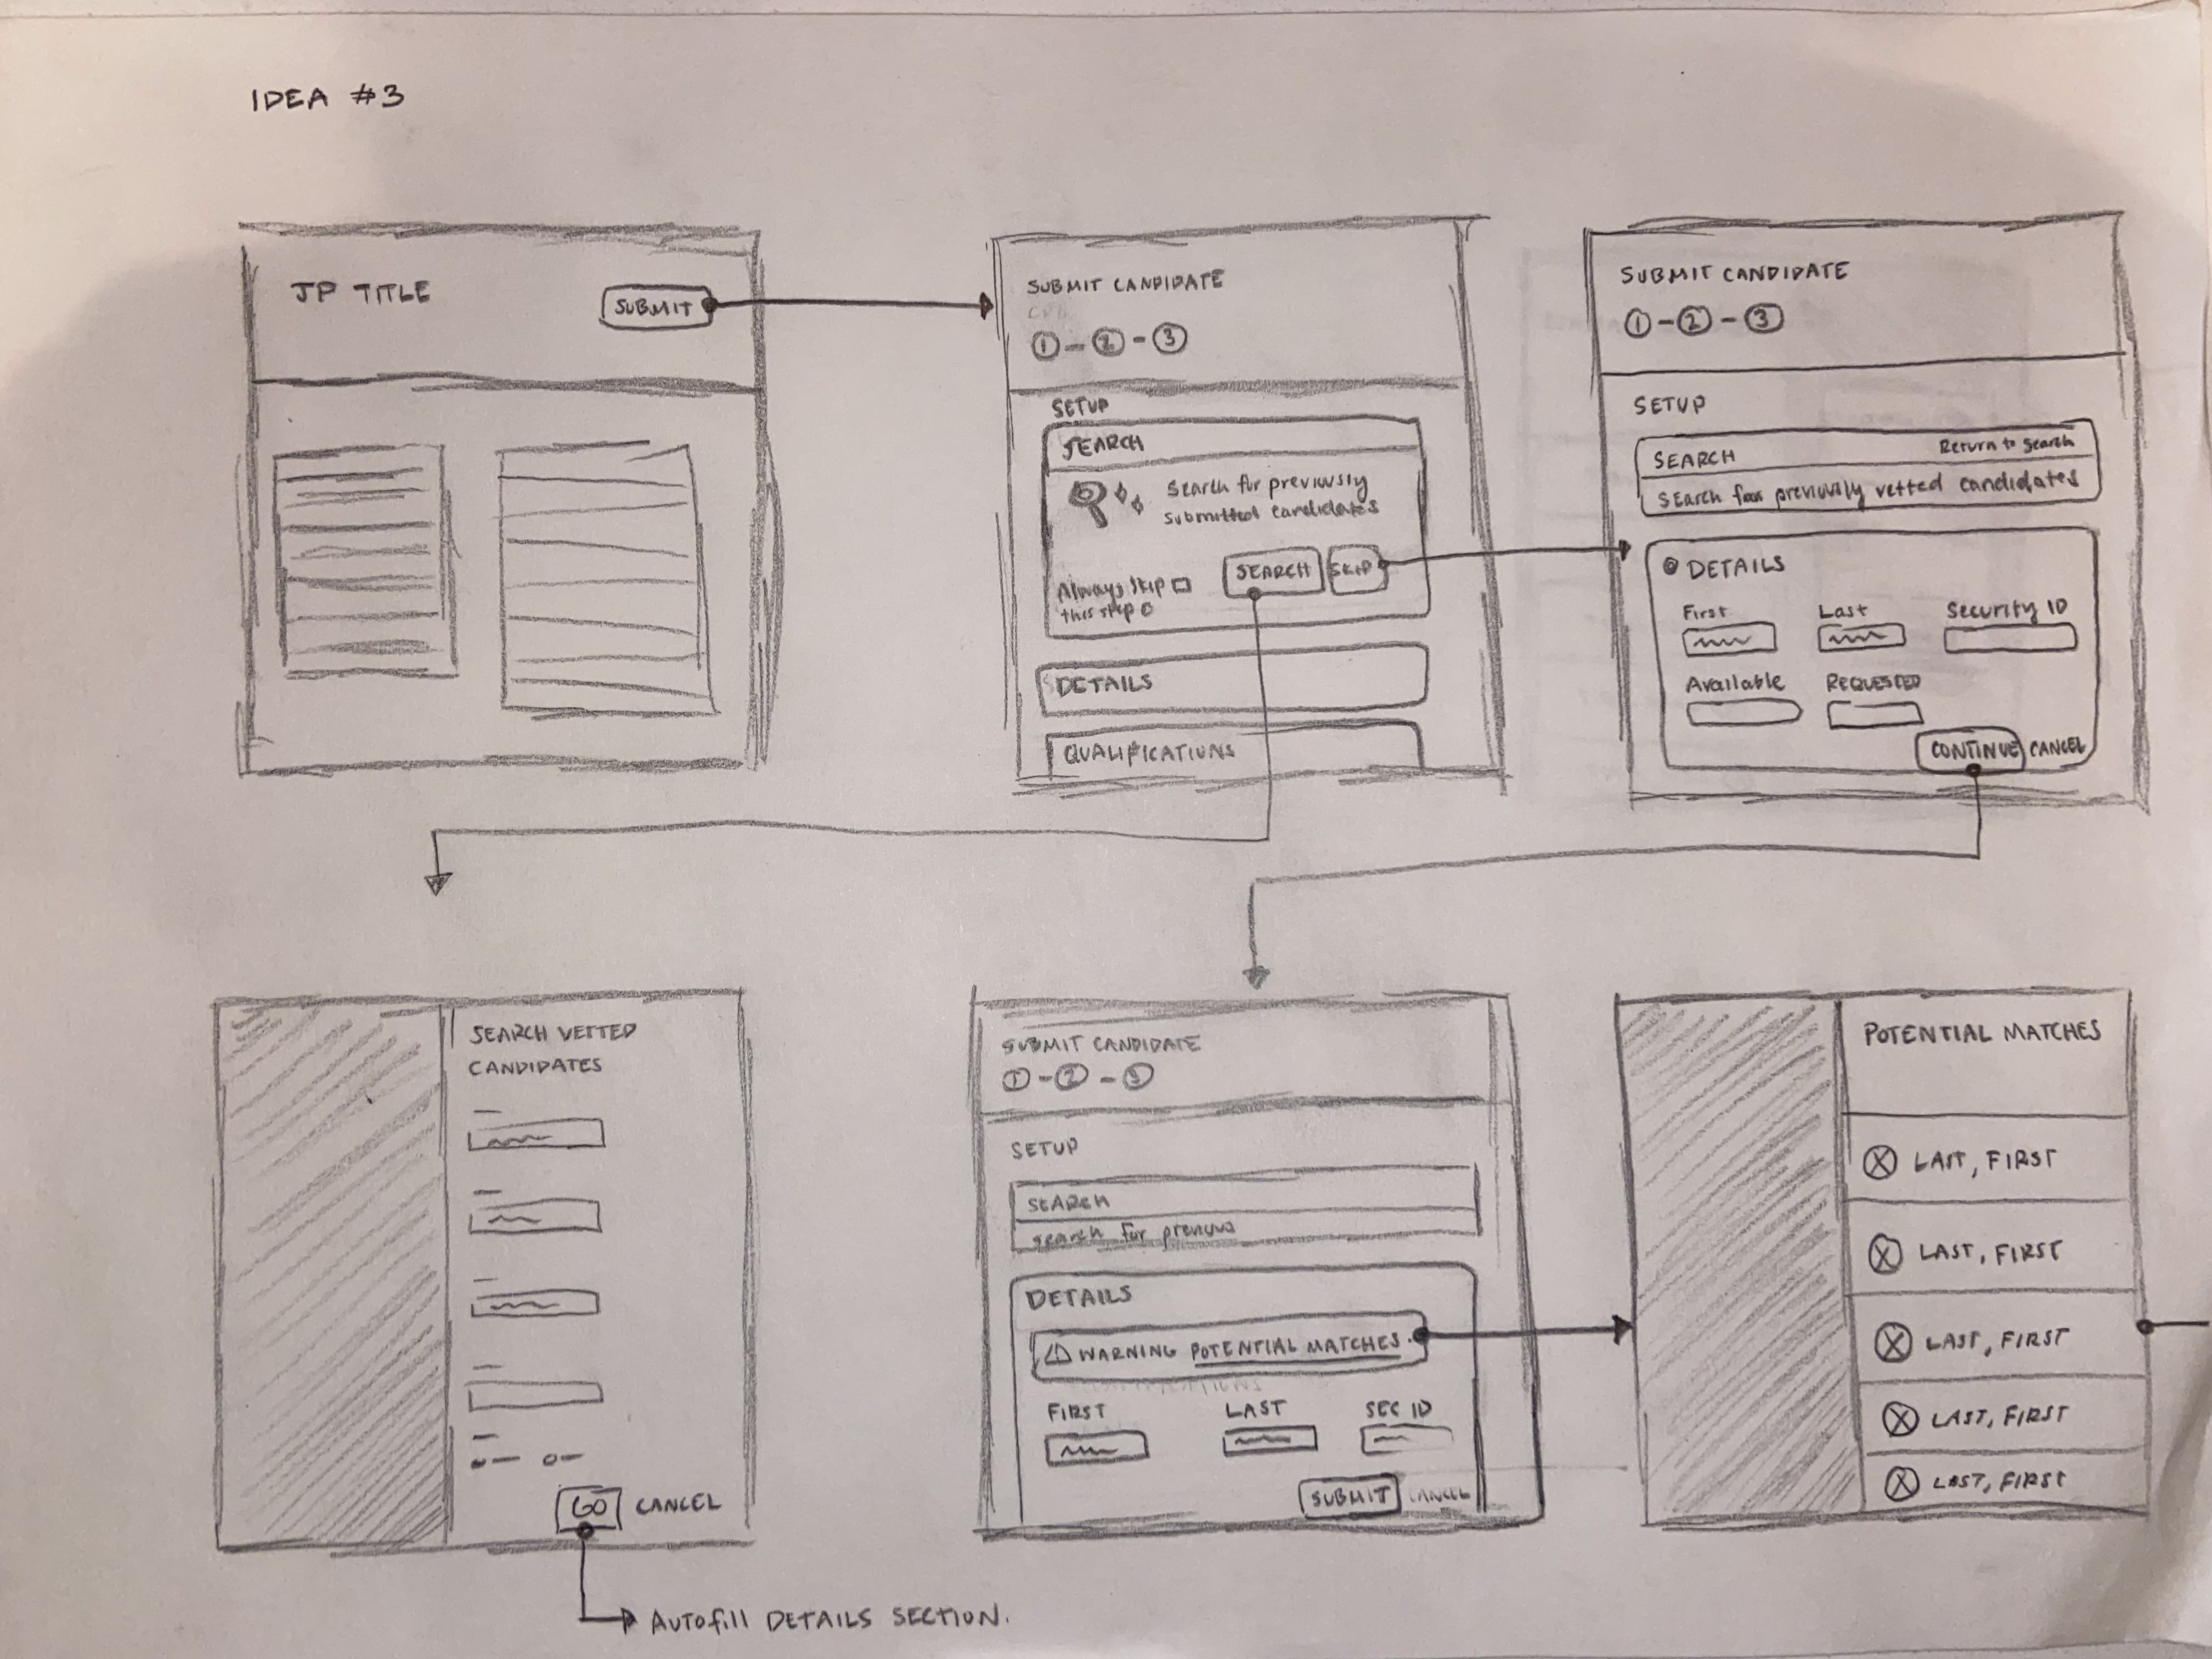 IDEA #3
JP TITLE
SUBMIT
SUBMIT CANDIDATE
1 - 2 - 3
SETUP
SEARCH
Search for previously
submitted candidates
Always skip
this step
SEARCH
SKIP
DETAILS
QUALIFICATIONS
SUBMIT CANDIDATE
1 - 2 - 3
SETUP
SEARCH Return to search
Search for previously vetted candidates
DETAILS
First Last Security ID
Available REQUESTED
CONTINUE CANCEL
SEARCH VETTED
CANDIDATES
GO CANCEL
AUTOfill DETAILS SECTION.
SUBMIT CANDIDATE
1 - 2 - 3
SETUP
SEARCH
search for previous
DETAILS
WARNING POTENTIAL MATCHES.
FIRST LAST SEC ID
SUBMIT CANCEL
POTENTIAL MATCHES
LAST, FIRST
LAST, FIRST
LAST, FIRST
LAST, FIRST
LAST, FIRST